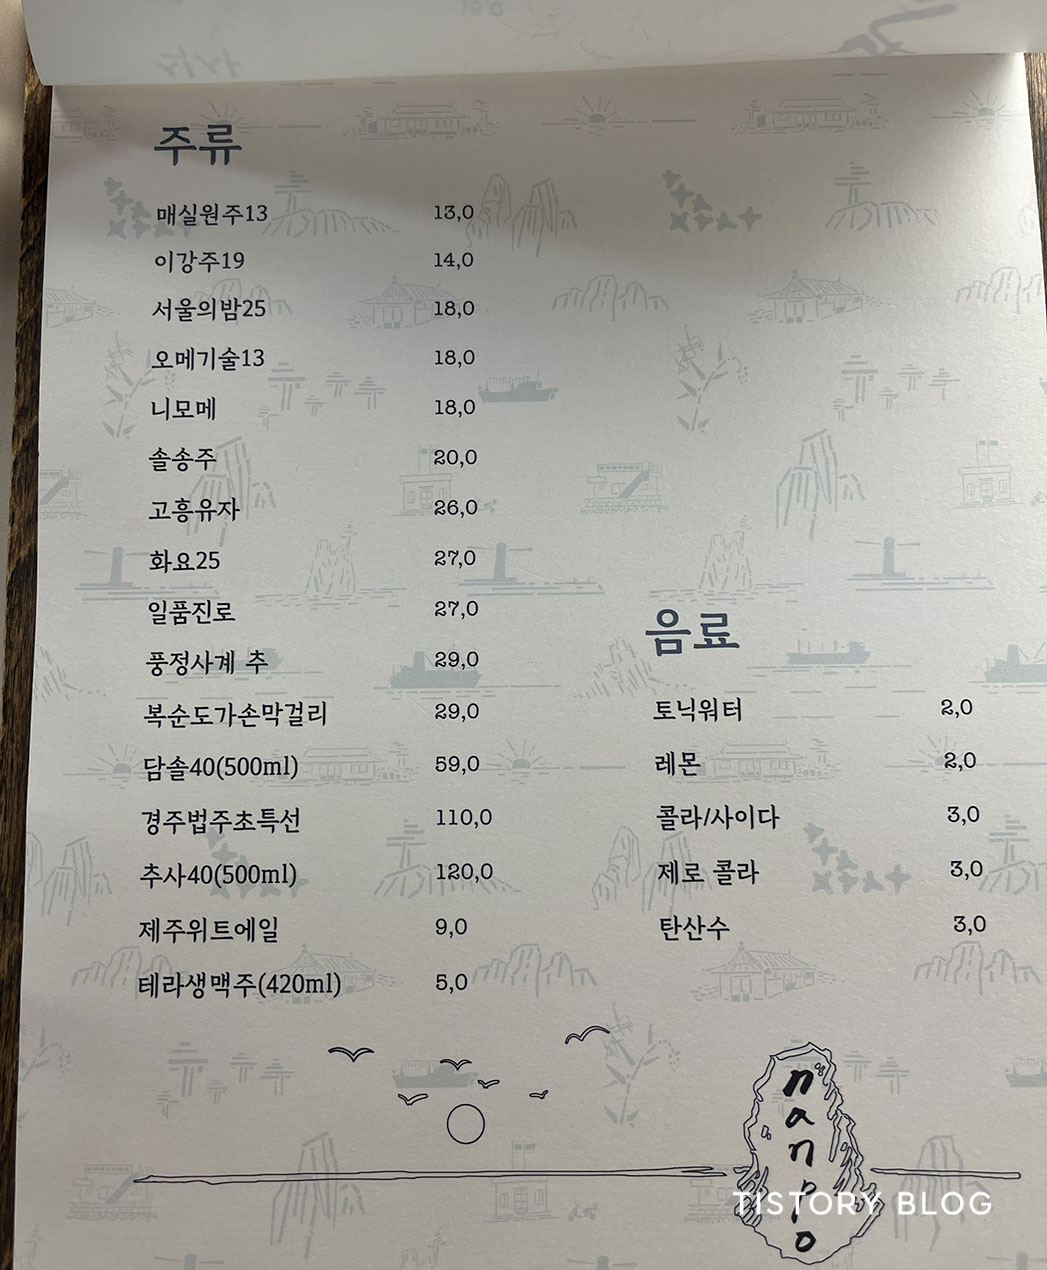 주류
매실원주13 13,0
이강주19 14,0
서울의밤25 18,0
오메기술13 18,0
니모메 18,0
솔송주 20,0
고흥유자 26,0
화요25 27,0
일품진로 27,0
풍정사계 추 29,0
복순도가손막걸리 29,0
담솔40(500ml) 59,0
경주법주초특선 110,0
추사40(500ml) 120,0
제주위트에일 9,0
테라생맥주(420ml) 5,0
음료
토닉워터 2,0
레몬 2,0
콜라/사이다 3,0
제로 콜라 3,0
탄산수 3,0
nanpo
TISTORY BLOG